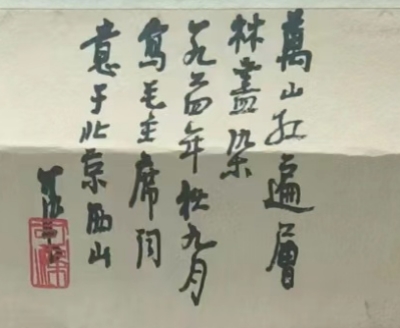 萬山红遍層
林盡染
一九六四年秋九月
寫毛主席詞
意于北京西山